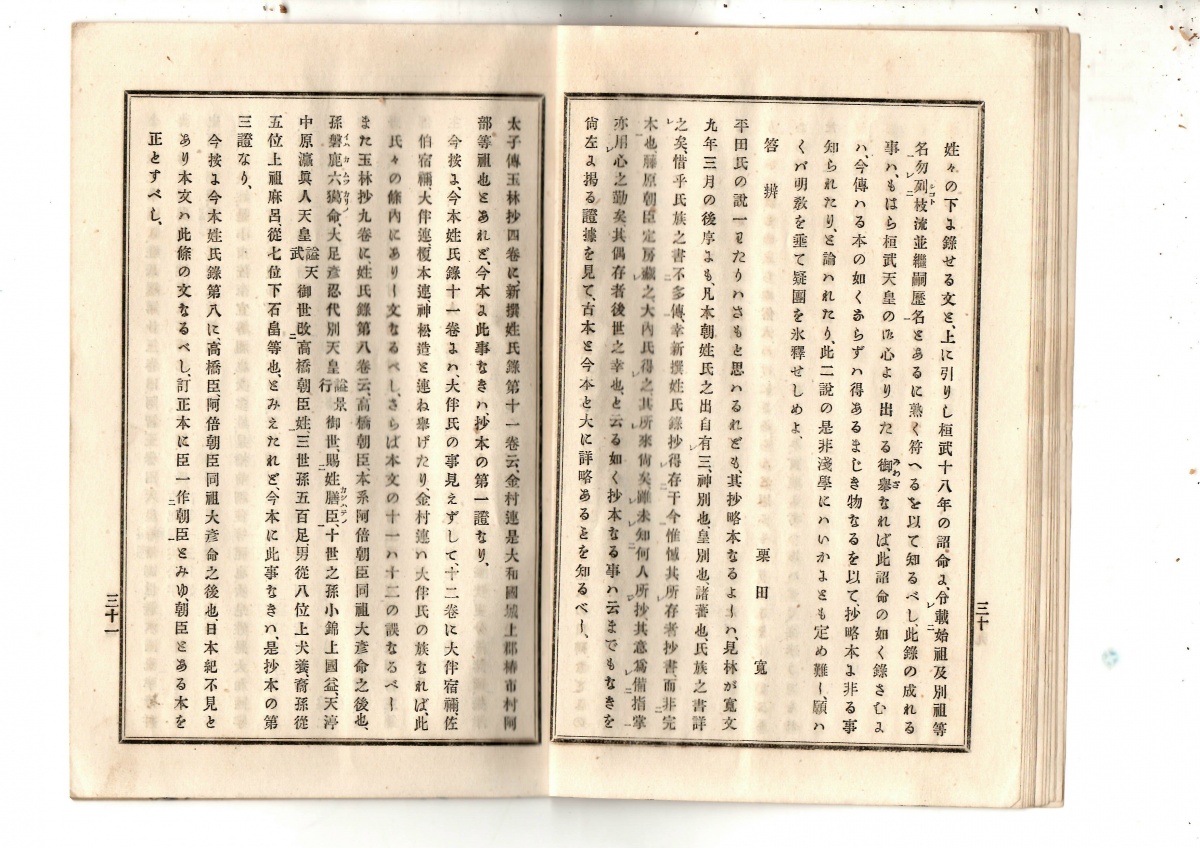 姓々の下よ錄せる文と、上に引りし桓武十八年の詔命よ、令載始祖及別祖等
名勿列枝流並繼嗣歷名とあるに熟く符へるを以て知るべし、此錄の成れる
事ハ、もはら桓武天皇の心より出たる御擧なれば、此詔命の如く錄さむよ
ハ、今傳ハる本の如くあらずハ得あるまじき物なるを以て、抄略本よ非る事
知られたり、と論ハれたり、此二說の是非淺學にハいかよとも定め難し願ハ
くバ明敎を垂て疑團を氷釋せしめよ、
答辨 栗田寬
平田氏の說一わたりハさもと思ハるれども、其抄略本なるよしハ、見林が寬文
九年三月の後序よも、凡本朝姓氏之出自有三、神別也、皇別也、諸蕃也、氏族之書詳
之矣、惜乎氏族之書不多傳、幸新撰姓氏錄抄得存于今惟憾其所存者抄書、而非完
本也、藤原朝臣定房藏之、大內氏得之其所來尙矣、雖未知何人所抄、其意爲備指掌
亦用心之勤矣其偶存者後世之幸也、と云る如く抄本なる事ハ云までもなきを
尙左よ揭る證據を見て、古本と今本と大に詳略あることを知るべし、
三十
太子傳玉林抄四卷に、新撰姓氏錄第十一卷云、金村連是大和國城上郡椿市村阿
部等祖也とあれど、今本よ此事なきハ、抄本の第一證なり、
今按よ、今本姓氏錄十一卷よハ、大伴氏の事見えずして、十二卷に大伴宿禰佐
伯宿禰大伴連榎本連、神松造と連ね擧げたり、金村連ハ大伴氏の族なれば此
氏々の條內にありし文なるべし、さらば本文の十一ハ十二の誤なるべし
また玉林抄九卷に、姓氏錄第八卷云、高橋朝臣、本系阿倍朝臣同祖大彥命之後也、
孫磐鹿六獦命、大足彥忍代別天皇諡景行御世、賜姓膳臣、十世之孫小錦上國益、天渟
中原瀛眞人天皇諡天武御世改高橋朝臣姓三世孫五百足男從八位上犬養、裔孫從
五位上祖麻呂從七位下石畠等也、とみえたれど今本に此事なきハ、是抄本の第
三證なり、
今按よ今本姓氏錄第八に、高橋臣、阿倍朝臣同祖大彥命之後也、日本紀不見と
あり本文ハ此條の文なるべし、訂正本に臣一作朝臣とみゆ、朝臣とある本を
正とすべし、
三十一